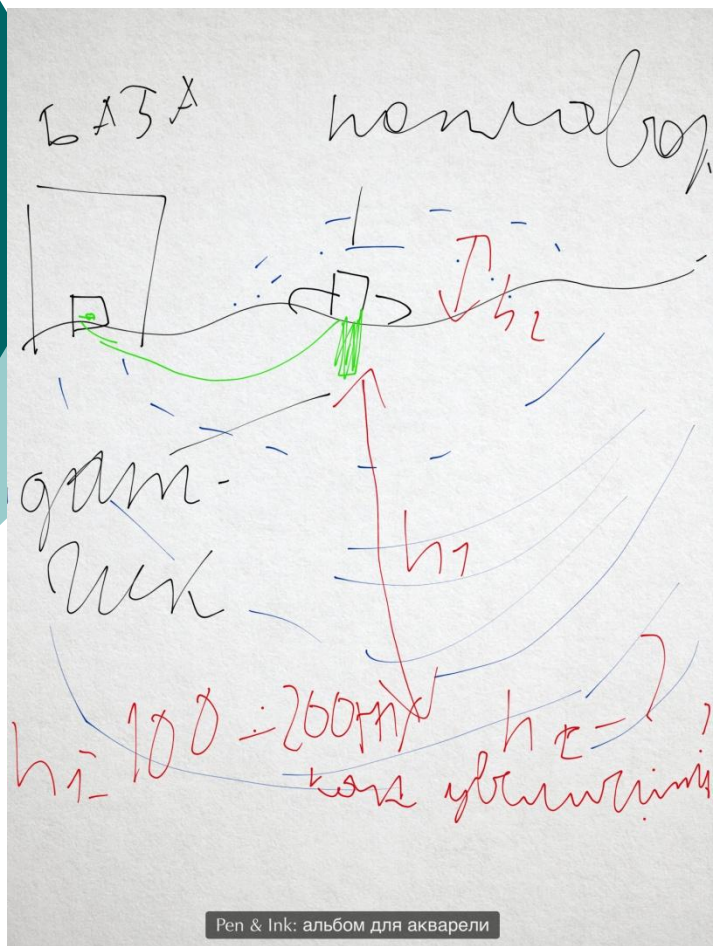 БАЗА
поплавок
h2
дат-
чик
h1
h1= 100÷200m h2-?
как увеличить?
Pen & Ink: альбом для акварели